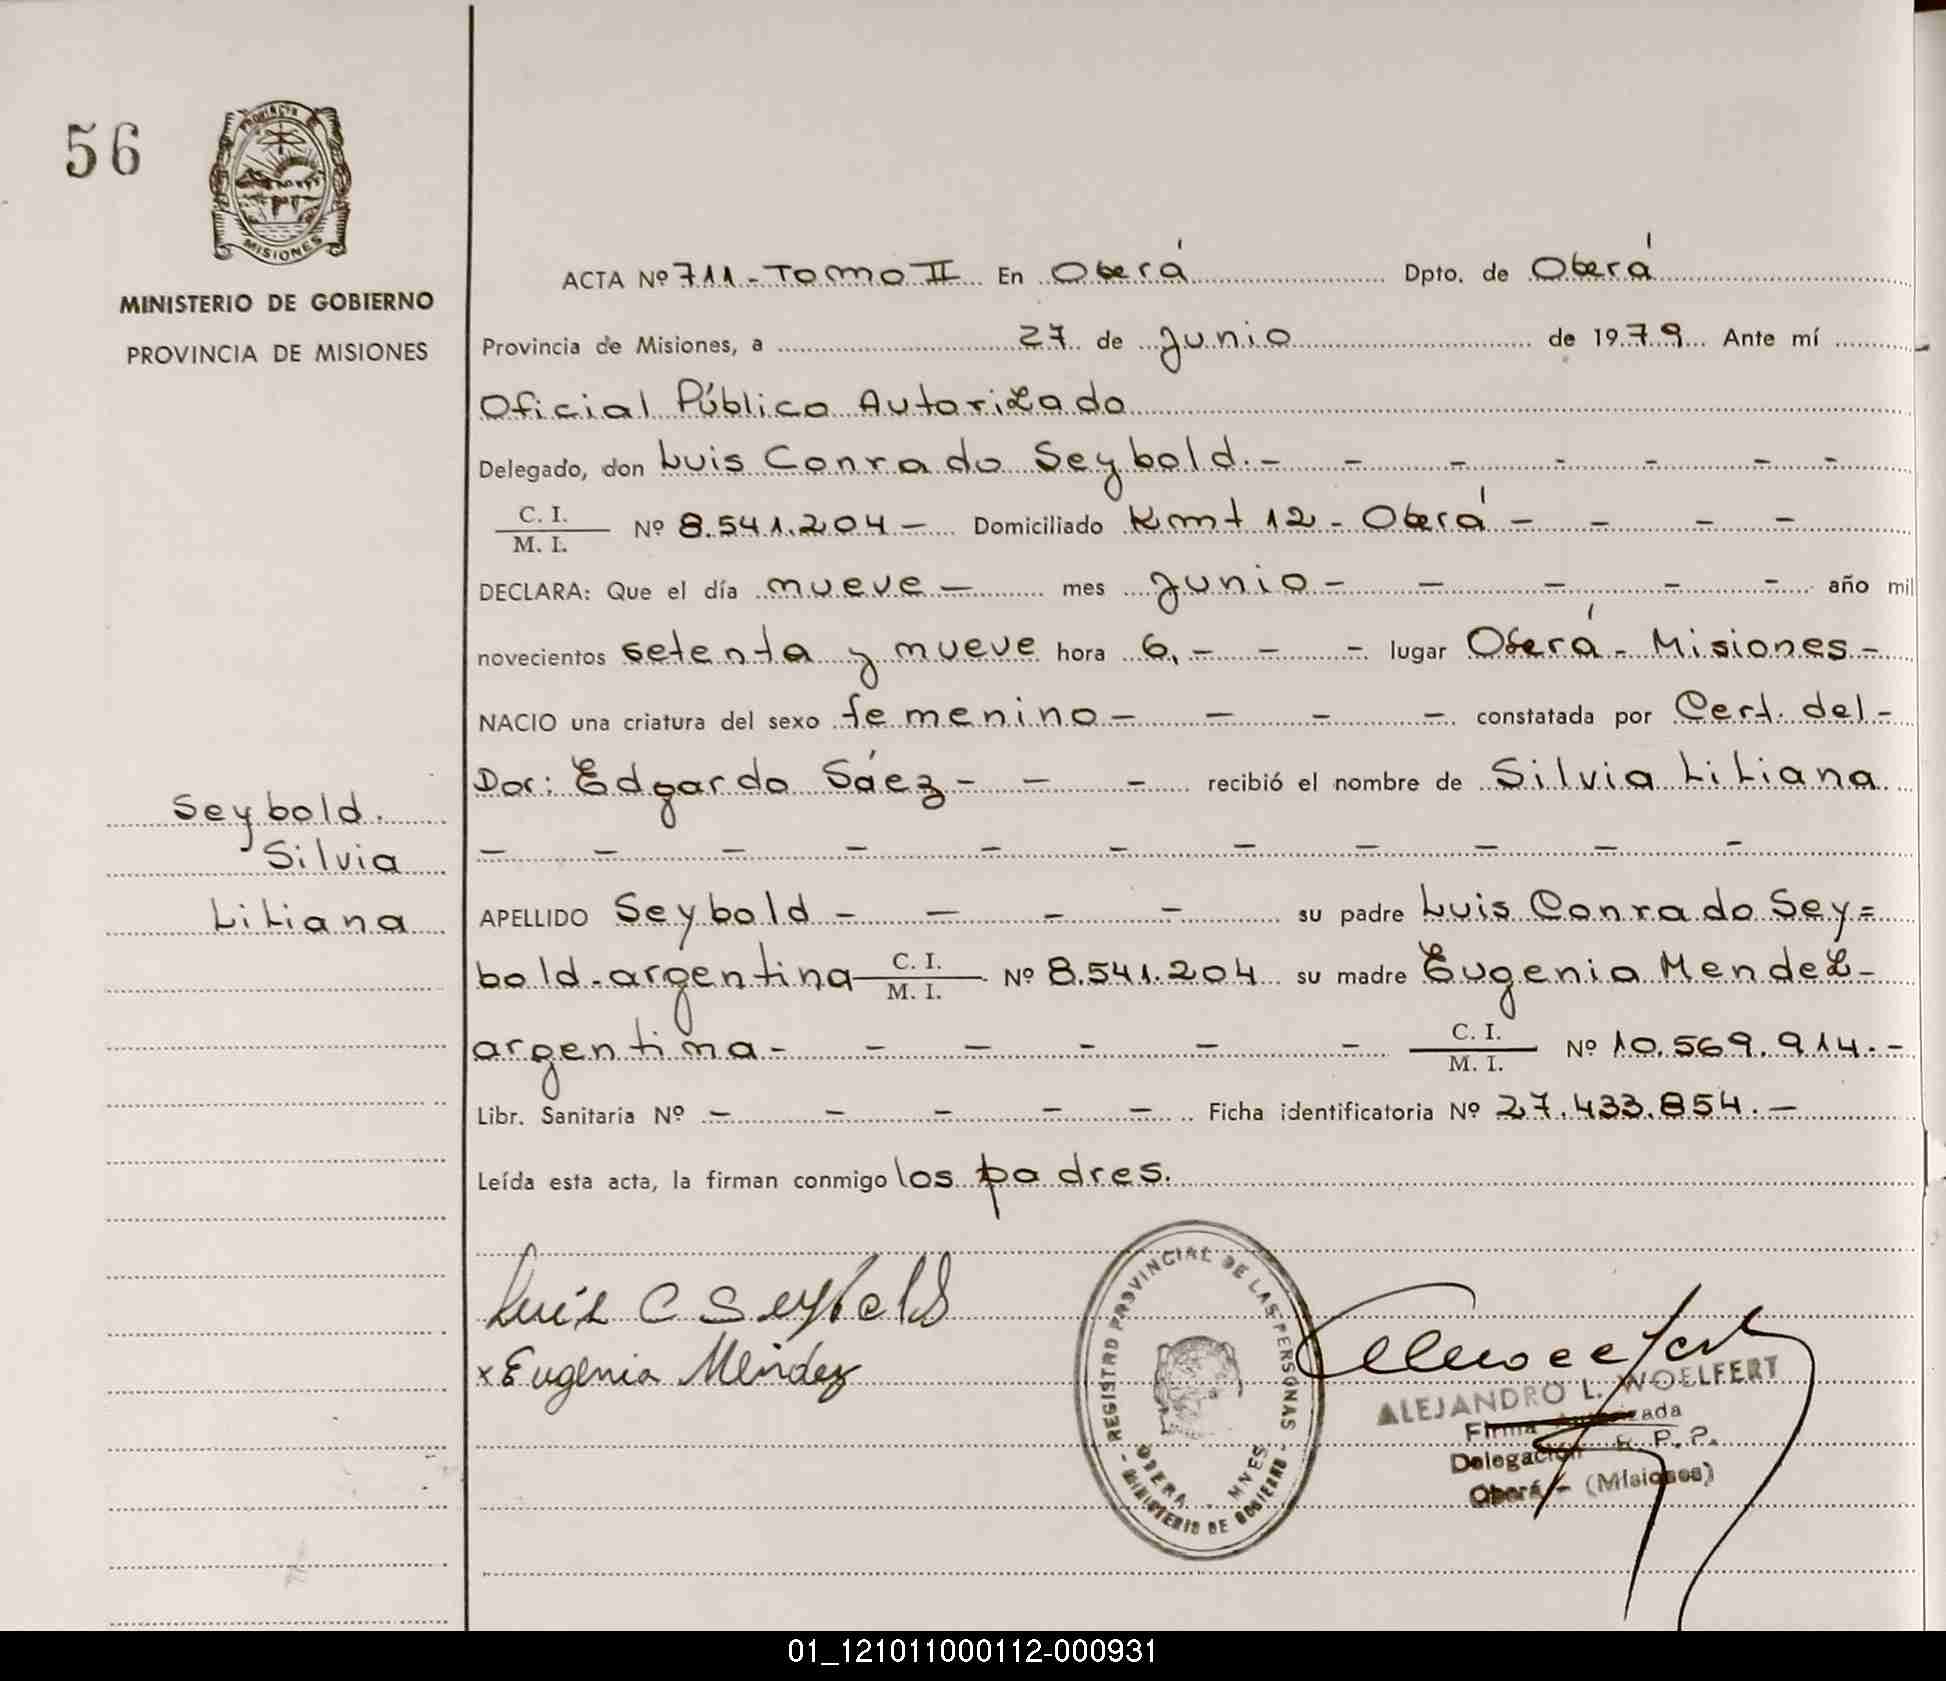 56
PROVINCIA DE
MISIONES
MINISTERIO DE GOBIERNO
PROVINCIA DE MISIONES
Seybold.
Silvia
Liliana
ACTA Nº 711 - Tomo II En Oberá Dpto. de Oberá
Provincia de Misiones, a 27 de junio de 1979 Ante mí
Oficial Público Autorizado
Delegado, don Luis Conrado Seybold. - - - - - - -
C. I.
M. I. Nº 8.541.204 - Domiciliado Kmt 12 - Oberá - - - -
DECLARA: Que el día nueve - mes junio - - - - - año mil
novecientos setenta y nueve hora 6, - - - lugar Oberá - Misiones -
NACIO una criatura del sexo femenino - - - - constatada por Cert. del -
Dor: Edgardo Sáez - - - recibió el nombre de Silvia Liliana
- - - - - - - - - - -
APELLIDO Seybold - - - - su padre Luis Conrado Sey=
bold - argentina C. I. / M. I. Nº 8.541.204 su madre Eugenia Mendez -
argentina - - - - - - C. I. / M. I. Nº 10.569.914. -
Libr. Sanitaria Nº - - - - - Ficha identificatoria Nº 27.433.854. -
Leída esta acta, la firman conmigo los padres.
Luis C Seybold
x Eugenia Méndez
- REGISTRO PROVINCIAL DE LAS PERSONAS -
OBERA - MNES
MINISTERIO DE GOBIERNO
ALEJANDRO L. WOELFERT
Firma Autorizada
Delegación R. P. P.
Oberá - (Misiones)
01_121011000112-000931